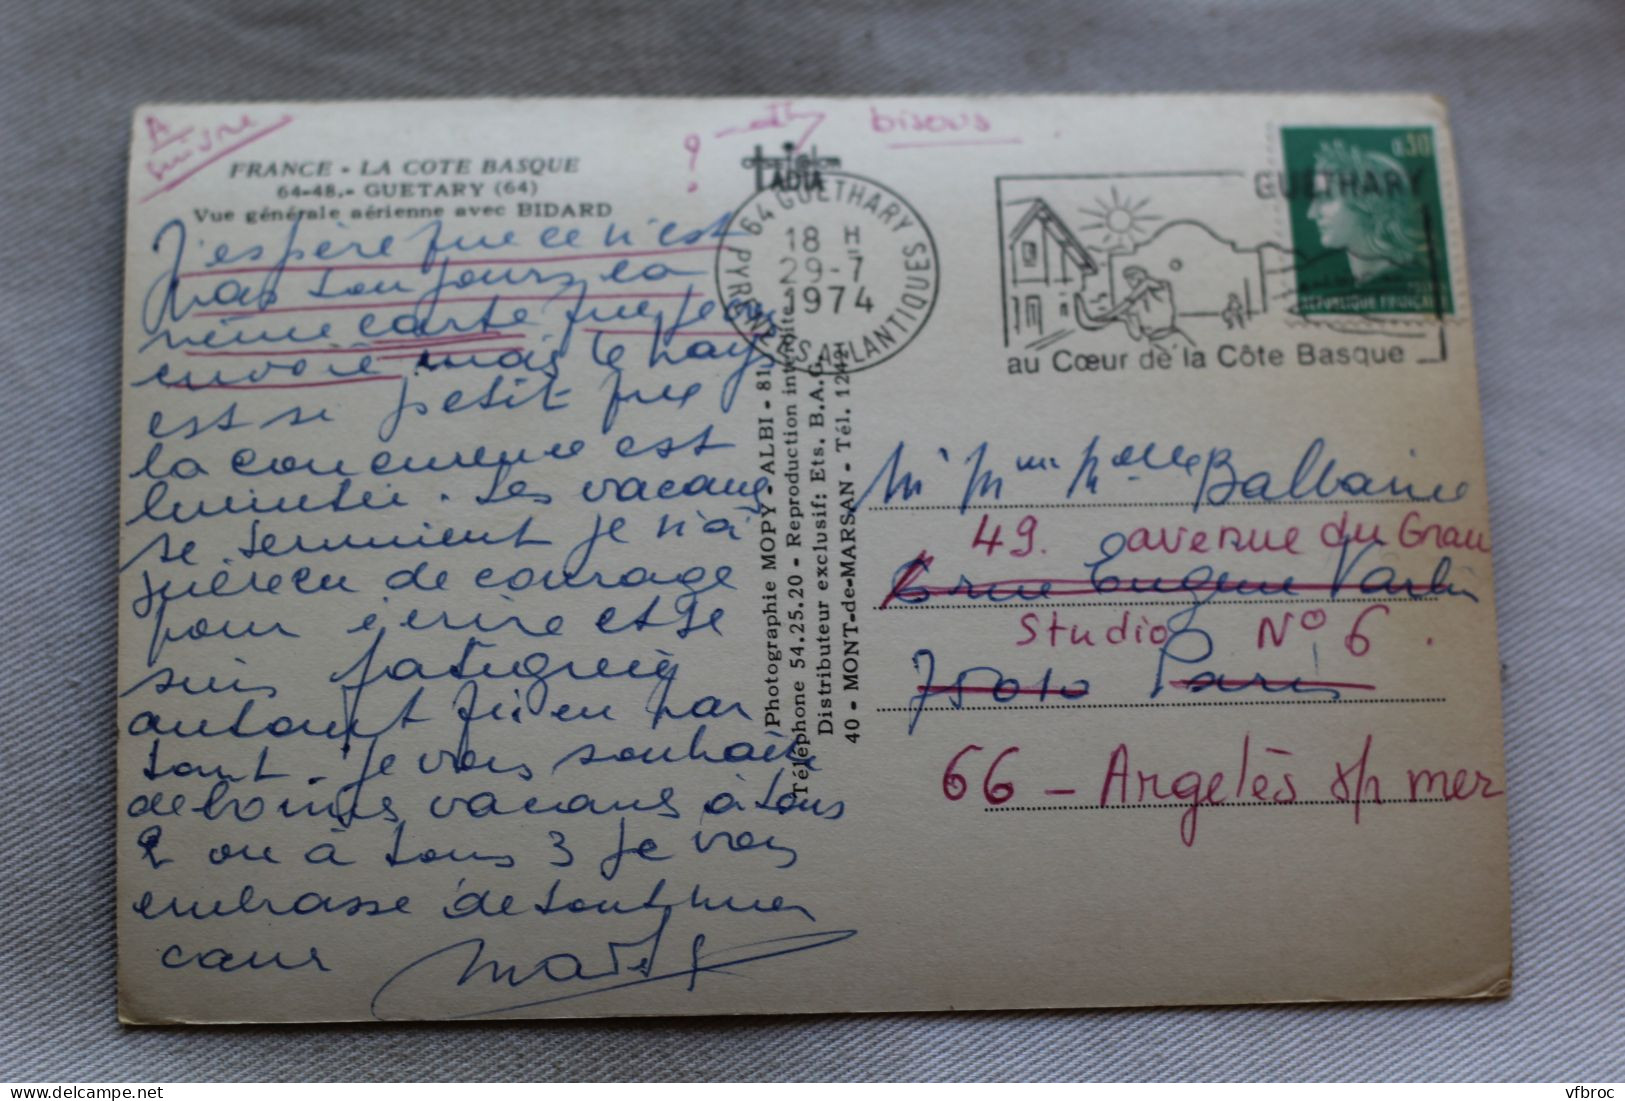 A
suivre
? bisous
FRANCE - LA COTE BASQUE
64-48.- GUETARY (64)
Vue générale aérienne avec BIDARD
J'espère que ce n'est
pas toujours la
même carte que je
envoie mais le pays
est si petit que
la concurence est
limitée. Les vacances
se terminent je n'ai
guère eu de courage
pour écrire et je
suis fatiguée
autant qu'en par
tant. Je vous souhaite
de bonnes vacances à tous
2 ou à tous 3 je vous
embrasse de tout mon
cœur
64 GUETHARY
PYRENEES ATLANTIQUES
18 H
29-7
1974
GUETHARY
au Cœur de la Côte Basque
0,30
REPUBLIQUE FRANÇAISE
Photographie MOPY - ALBI - 81
Téléphone 54.25.20 - Reproduction interdite
Distributeur exclusif: Ets. B.A.G.
40 - MONT-de-MARSAN - Tél. 1242
Mr Mme Melle Balbarie
49. avenue du Grau
6 rue Eugène Varlin
Studio N° 6.
75010 Paris
66 - Argelès s/ mer
vfbroc